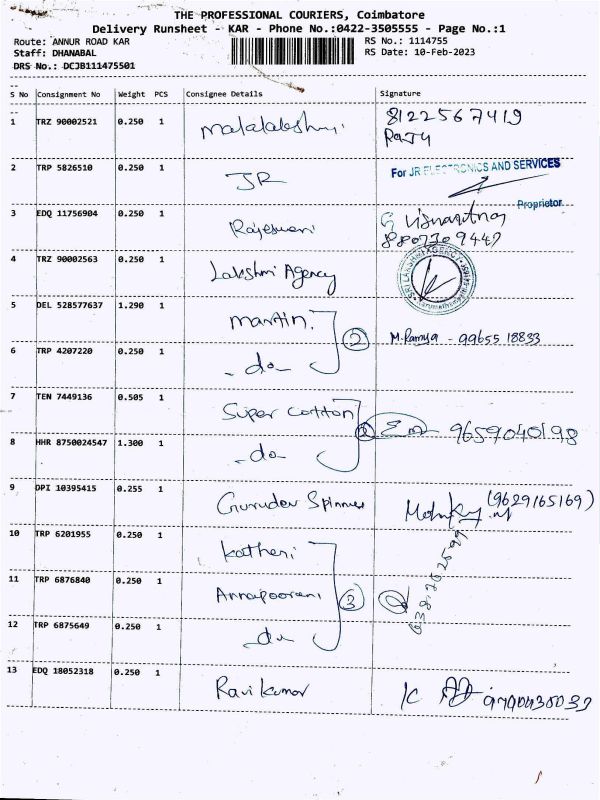 THE PROFESSIONAL COURIERS, Coimbatore
Delivery Runsheet - KAR - Phone No.:0422-3505555 - Page No.:1
Route: ANNUR ROAD KAR RS No.: 1114755
Staff: DHANABAL RS Date: 10-Feb-2023
DRS No.: DCJB111475501
S No Consignment No Weight PCS Consignee Details Signature
1 TRZ 90002521 0.250 1 8122567419
Raju
2 TRP 5826510 0.250 1 JR For JR ELECTRONICS AND SERVICES
Proprietor
3 EDQ 11756904 0.250 1 Rajeswari
8807309447
4 TRZ 90002563 0.250 1 Lakshmi Agency SRI LAKSHMI AGENCY
5 DEL 528577637 1.290 1 Martin. 2 M.Ramya - 99655 18833
6 TRP 4207220 0.250 1 -do-
7 TEN 7449136 0.505 1 Super Cotton 9659040198
8 HHR 8750024547 1.300 1 -do-
9 DPI 10395415 0.255 1 Gurudev Spinners (9629165169)
10 TRP 6201955 0.250 1 Katheri
11 TRP 6876840 0.250 1 Annapoorani 3
12 TRP 6875649 0.250 1 -do-
13 EDQ 18052318 0.250 1 Ravi Kumar